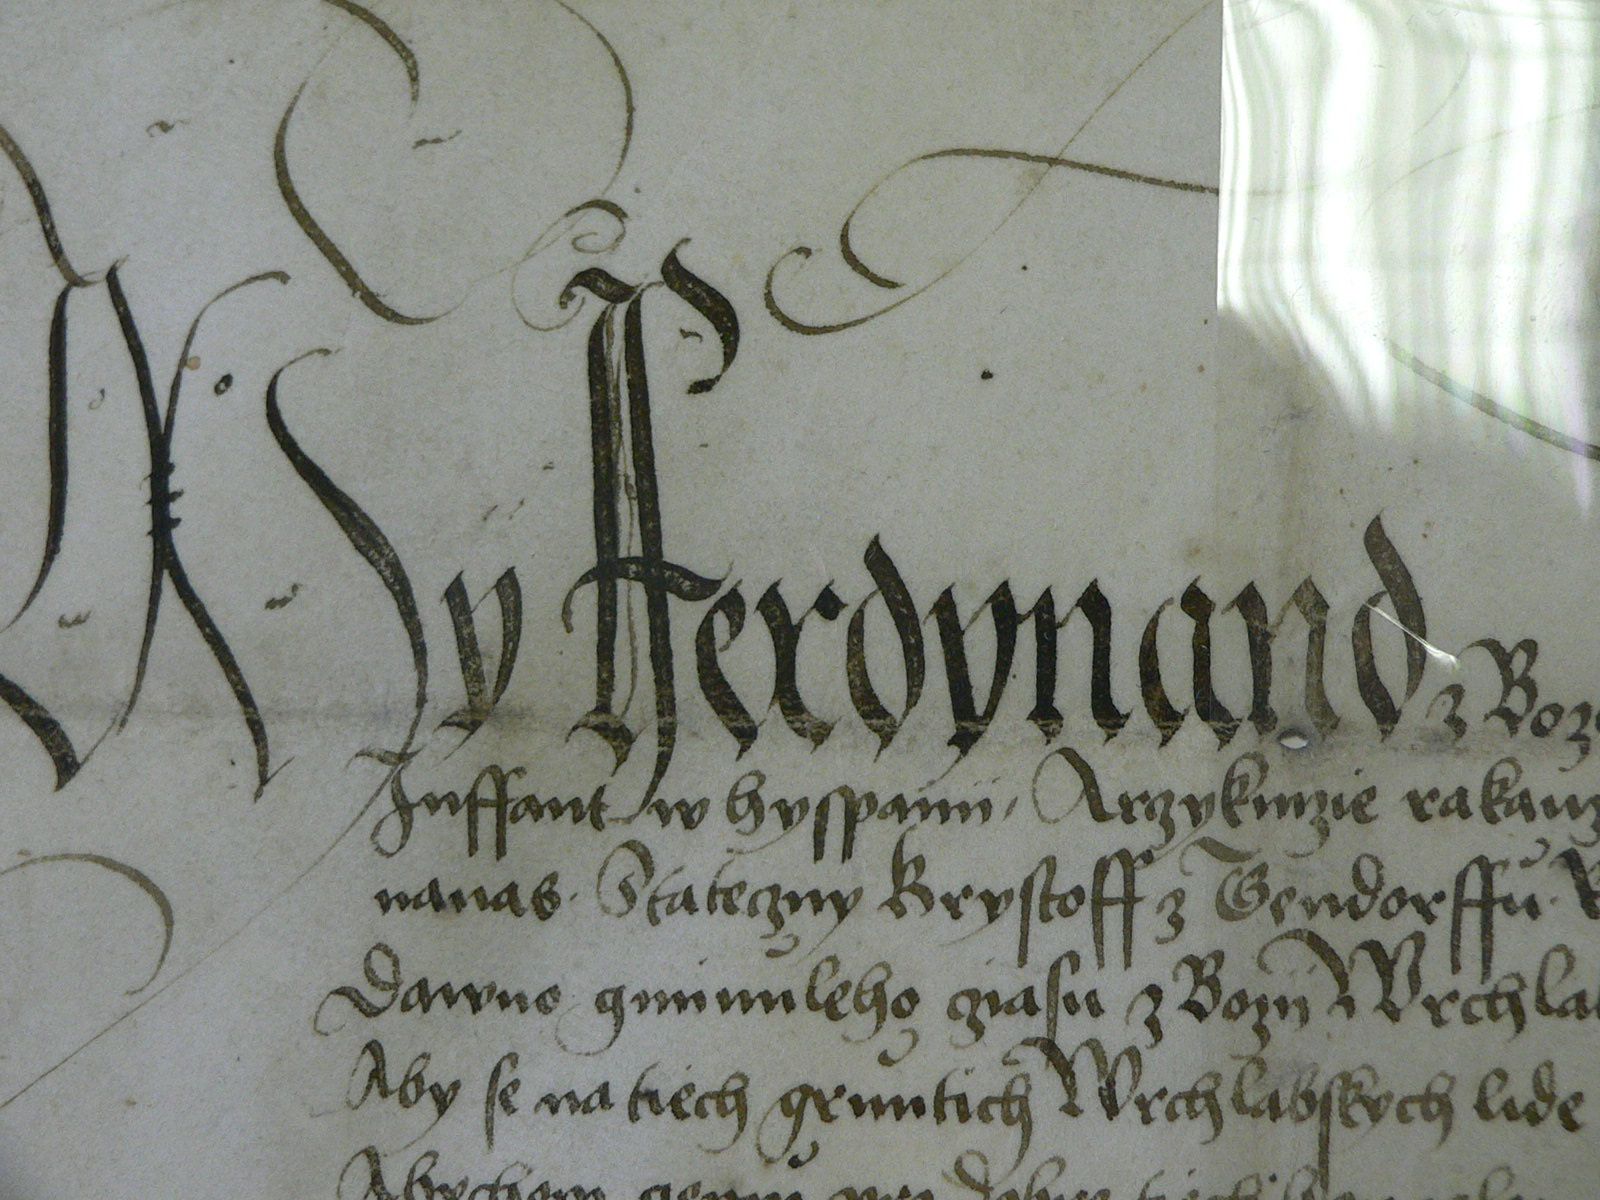 My Fferdynand z Boz
Inffant w hyspanii, Arzyknize rakauz
nanas. Stateczny Krystoff z Gendorffu.
Dawno gminuleho cziasu z Bozij Wrchlab
Aby se na tiech gruntich Wrchlabskych lide
Abychom